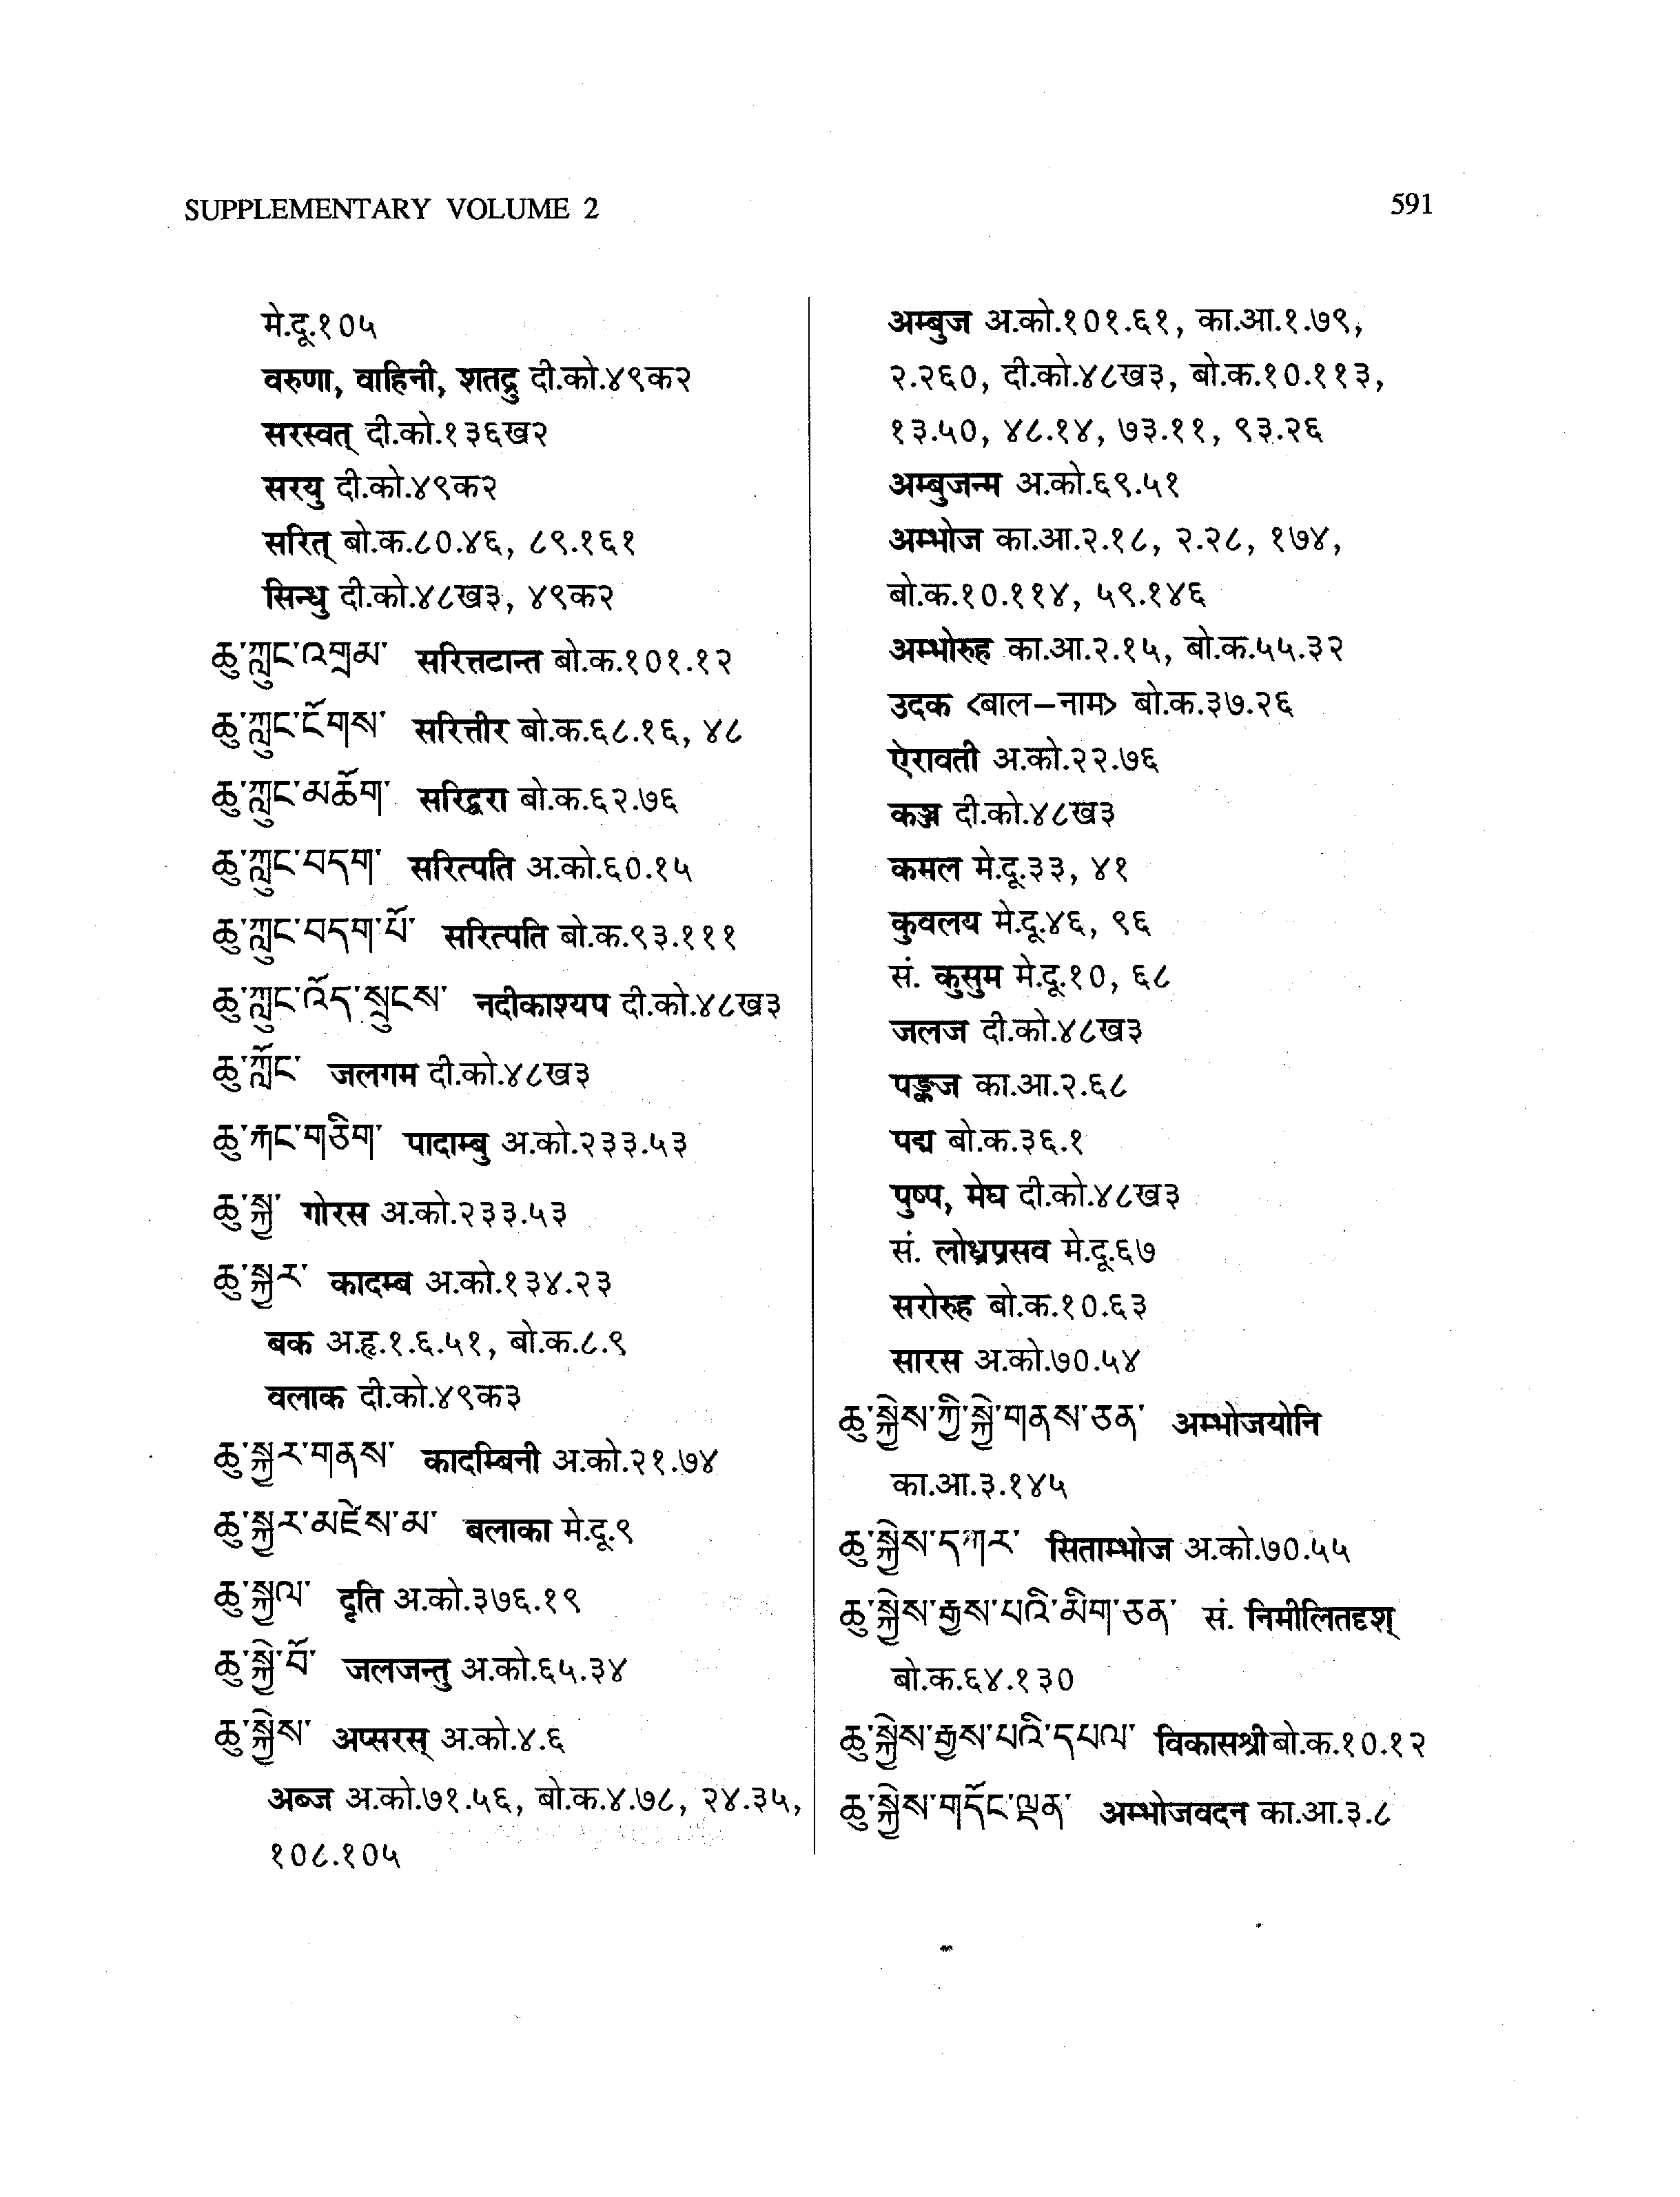 SUPPLEMENTARY VOLUME 2
591
मे.दू.१०५
वरुणा, वाहिनी, शतद्रु दी.को.४९क२
सरस्वत् दी.को.१३६ख२
सरयु दी.को.४९क२
सरित् बो.क.८०.४६, ८९.१६१
सिन्धु दी.को.४८ख३, ४९क२
ཆུ་ཀླུང་འགྲམ་ सरित्तटान्त बो.क.१०१.१२
ཆུ་ཀླུང་ངོགས་ सरित्तीर बो.क.६८.१६, ४८
ཆུ་ཀླུང་མཆོག་ सरिद्वरा बो.क.६२.७६
ཆུ་ཀླུང་བདག་ सरित्पति अ.को.६०.१५
ཆུ་ཀླུང་བདག་པོ་ सरित्पति बो.क.९३.१११
ཆུ་ཀླུང་འོད་སྲུངས་ नदीकाश्यप दी.को.४८ख३
ཆུ་ཀློང་ जलगम दी.को.४८ख३
ཆུ་རྐང་གཅིག་ पादाम्बु अ.को.२३३.५३
ཆུ་སྐྱ་ गोरस अ.को.२३३.५३
ཆུ་སྐྱར་ कादम्ब अ.को.१३४.२३
बक अ.हृ.१.६.५१, बो.क.८.९
वलाक दी.को.४९क३
ཆུ་སྐྱར་གནས་ कादम्बिनी अ.को.२१.७४
ཆུ་སྐྱར་མཛེས་མ་ बलाका मे.दू.९
ཆུ་སྐྱལ་ दृति अ.को.३७६.१९
ཆུ་སྐྱེ་བོ་ जलजन्तु अ.को.६५.३४
ཆུ་སྐྱེས་ अप्सरस् अ.को.४.६
अब्ज अ.को.७१.५६, बो.क.४.७८, २४.३५,
१०८.१०५
अम्बुज अ.को.१०१.६१, का.आ.१.७९,
२.२६०, दी.को.४८ख३, बो.क.१०.११३,
१३.५०, ४८.१४, ७३.११, ९३.२६
अम्बुजन्म अ.को.६९.५१
अम्भोज का.आ.२.१८, २.२८, १७४,
बो.क.१०.११४, ५९.१४६
अम्भोरुह का.आ.२.१५, बो.क.५५.३२
उदक <बाल–नाम> बो.क.३७.२६
ऐरावती अ.को.२२.७६
कञ्ज दी.को.४८ख३
कमल मे.दू.३३, ४१
कुवलय मे.दू.४६, ९६
सं. कुसुम मे.दू.१०, ६८
जलज दी.को.४८ख३
पङ्कज का.आ.२.६८
पद्म बो.क.३६.१
पुष्प, मेघ दी.को.४८ख३
सं. लोध्रप्रसव मे.दू.६७
सरोरुह बो.क.१०.६३
सारस अ.को.७०.५४
ཆུ་སྐྱེས་ཀྱི་སྐྱེ་གནས་ཅན་ अम्भोजयोनि
का.आ.३.१४५
ཆུ་སྐྱེས་དཀར་ सिताम्भोज अ.को.७०.५५
ཆུ་སྐྱེས་རྒྱས་པའི་མིག་ཅན་ सं. निमीलितदृश्
बो.क.६४.१३०
ཆུ་སྐྱེས་རྒྱས་པའི་དཔལ་ विकासश्री बो.क.१०.१२
ཆུ་སྐྱེས་གདོང་ལྡན་ अम्भोजवदन का.आ.३.८